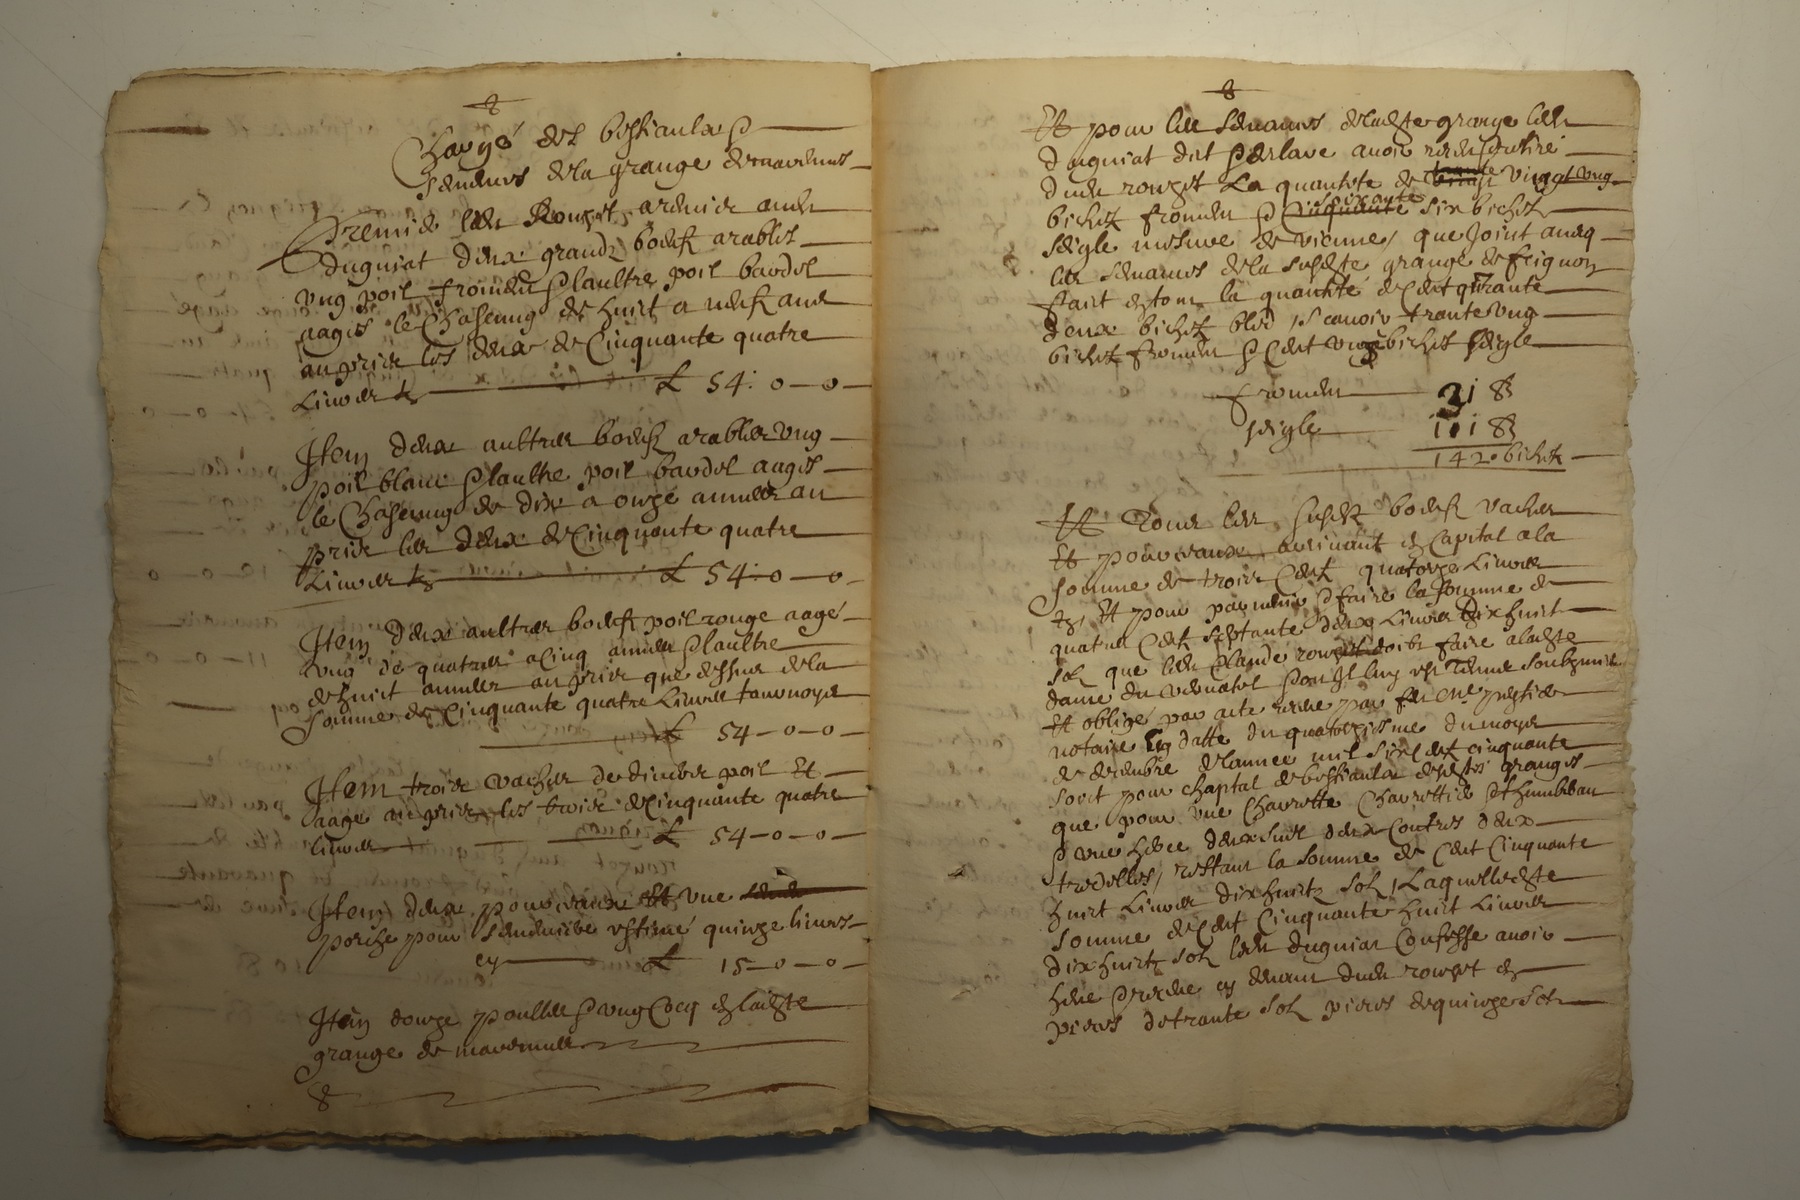 Chargé des bestiaulx &
semences de la grange de
Premier led Rouget grenier aud
duguiat deux grandz boeufz arables
ung poil froment & laultre poil bardel
aagés le chascung de huict a neuf ans
au prix les deux de Cinquante quatre
Livres £ 54 : 0 — 0 —
Item deux aultres boeufz arables ung
poil blanc & laultre poil bardel aagés
le chascung de dix a onze années au
prix les deux de Cinquante quatre
Livres £ 54 : 0 — 0 —
Item deux aultres boeufz poil rouge aagé
ung de quatre a Cinq années & laultre
de huict années au prix que dessus de la
somme de Cinquante quatre Livres tournoyes
£ 54 — 0 — 0 —
Item trois vaches de divers poil et
aage au prix les trois de Cinquante quatre
livres £ 54 — 0 — 0 —
Item deux pourceaux et une
porche pour estimé quinze livres
cy £ 15 — 0 — 0 —
Item douze poulles & ung Cocq en ladicte
grange de
Et pour les semances de ladicte grange led
duguiat dict & desclare avoir
dud rouget La quantité de trante ung
bichetz froment & soixante six bichetz
seigle mesure de vienne, que Joint avecq
les semances de la susdicte grange de feignon
faict en tout la quantité de Cent quarante
deux bichetz bled, scavoir trante ung
bichetz froment & Cent unze bichetz seigle
froment 31 B
seigle 111 B
142 bichetz
Et Tous les susdictz boeufz vaches
Et pourceaux arrivant en Capital a la
somme de trois Cent quatorze Livres
Et pour parvenir & faire la somme de
quatre Cent septante deux Livres dix huict
sol que led Claude rouget doibt faire a ladicte
dame du vernatel & quil luy est Tenue soubzmis
Et obligé par acte receu par feu Me
notaire en datte du quatorziesme du moys
de decembre de lannee mil six Cent cinquante
soict pour chaptal de bestiaulx desdictes granges
que pour une Charrette Charrettier & thumbereau
& une deux deux Coutres deux
restant la somme de Cent Cinquante
huict Livres dix huict sol, Laquelle dicte
somme de Cent Cinquante huict Livres
dix huict sol led duguiat Confesse avoir
heue & receue cy devant dud rouget en
pieces de trante sol pieces de quinze sol